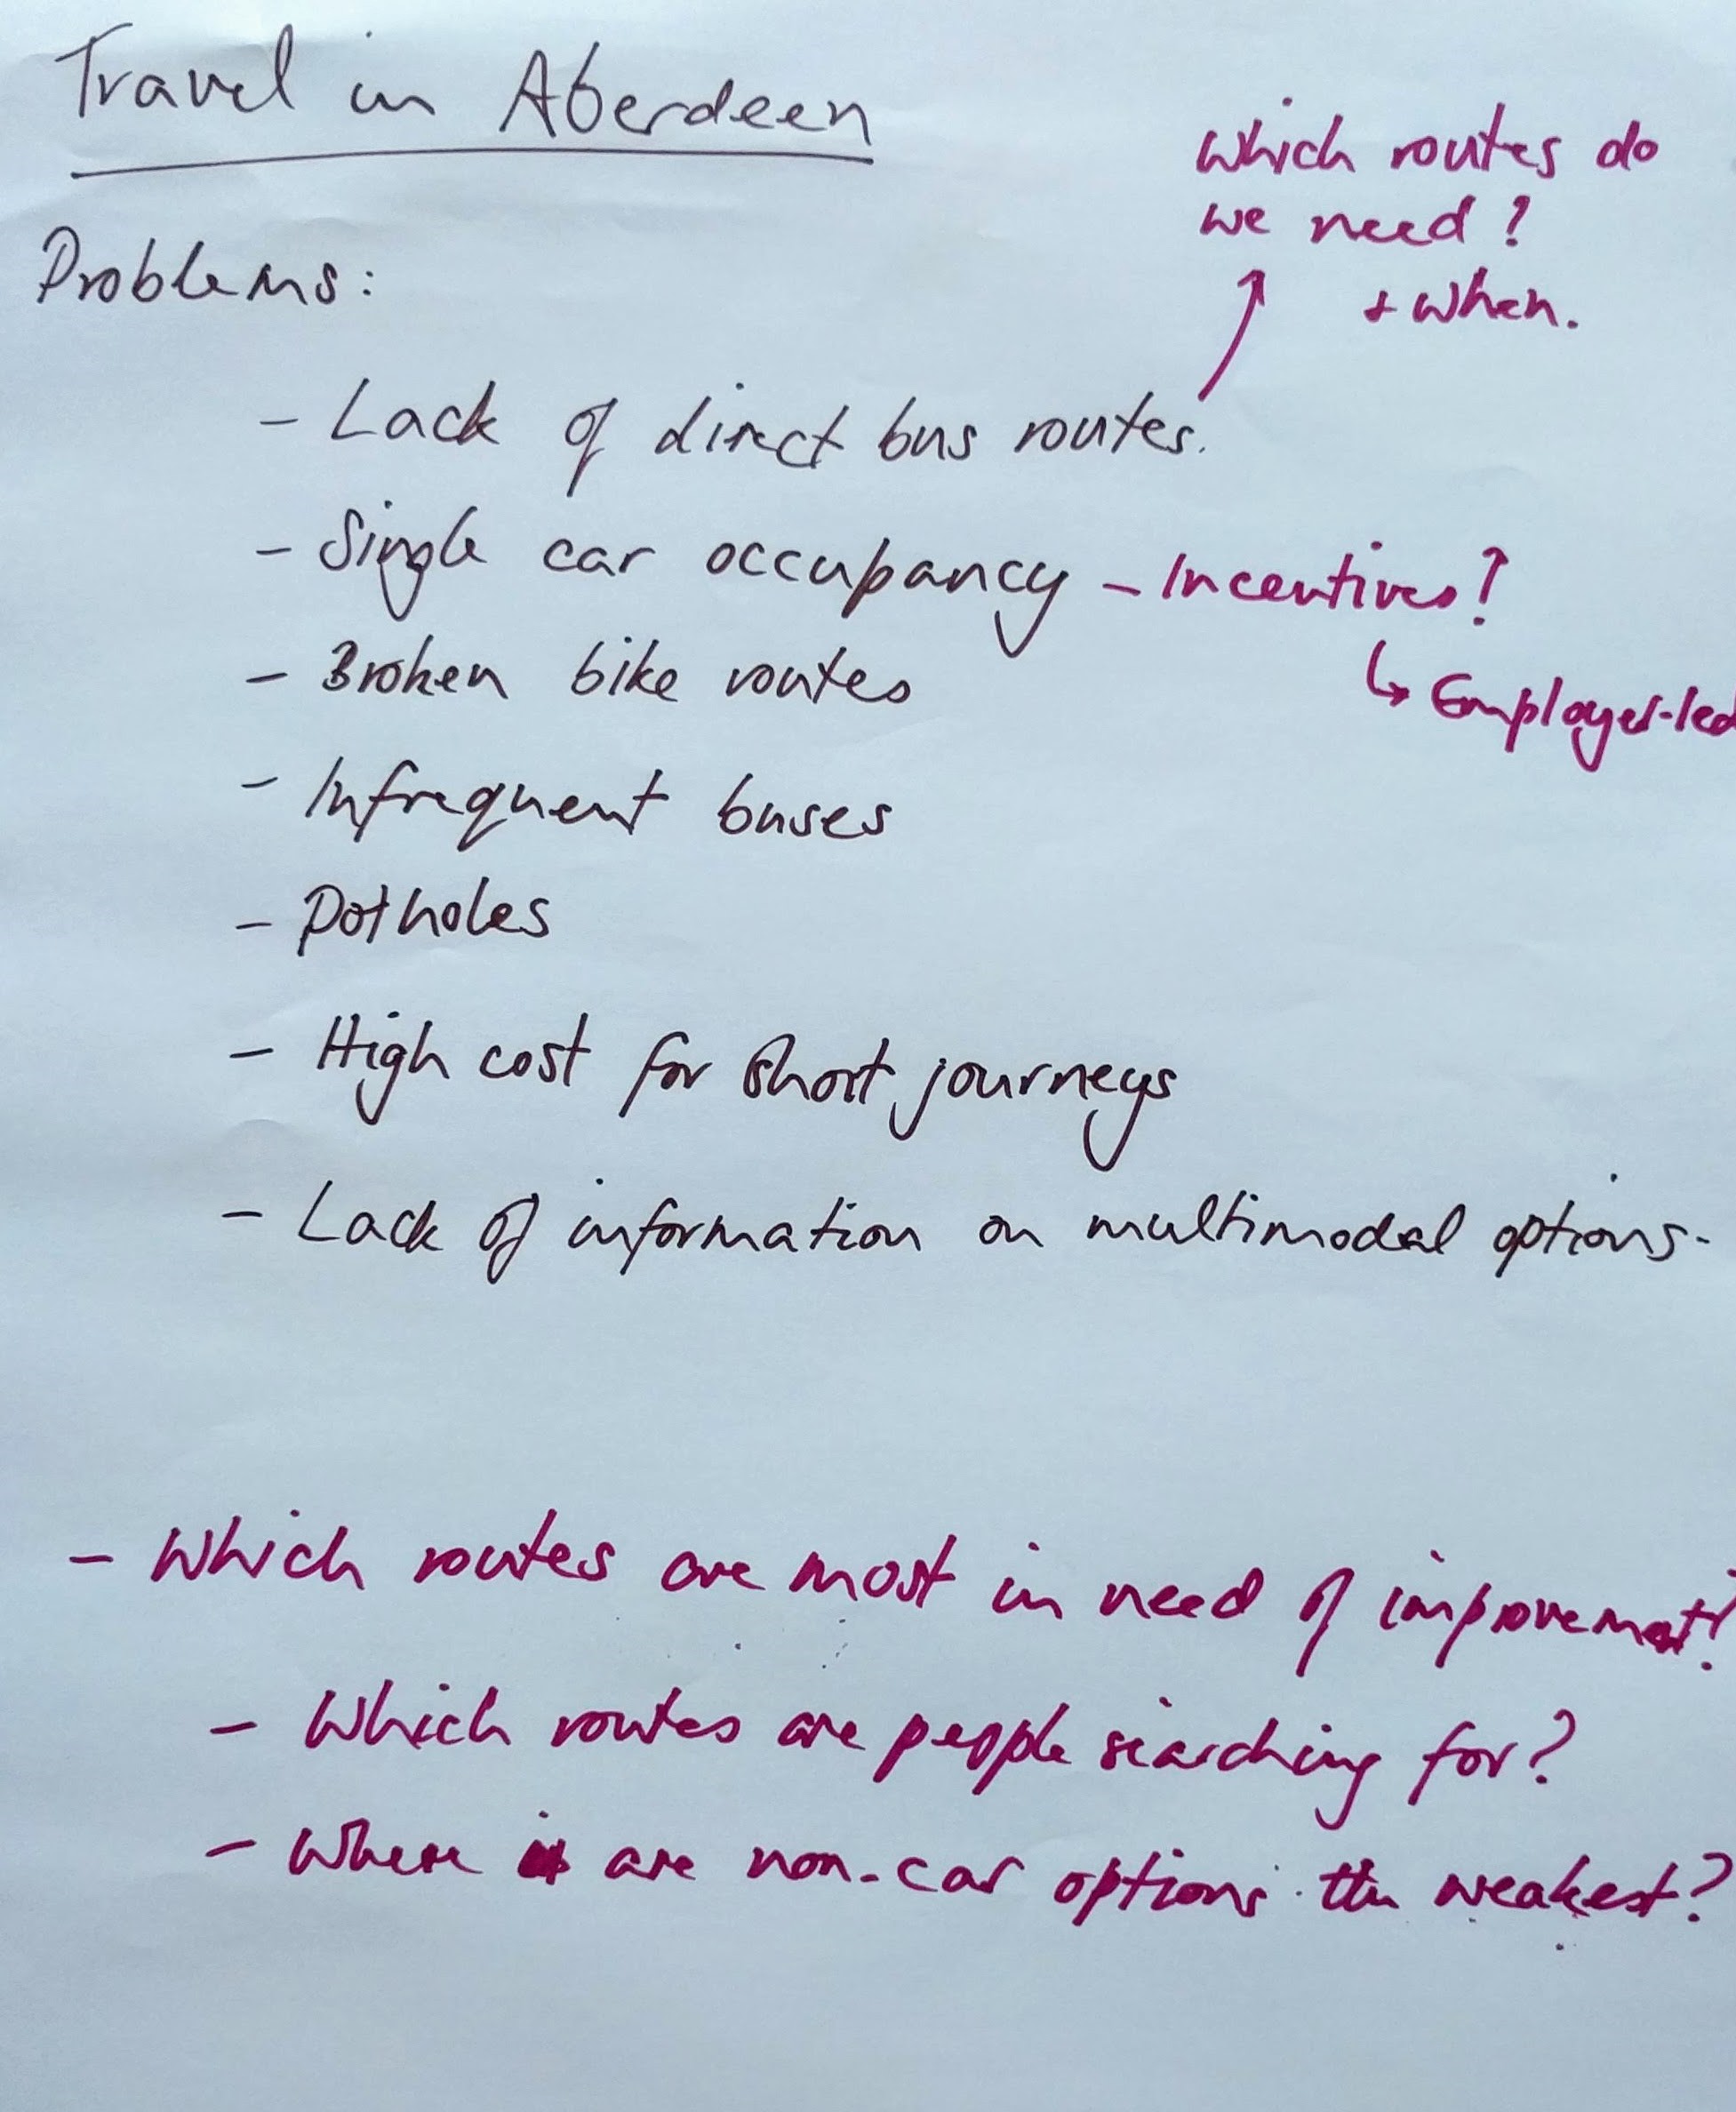 Travel in Aberdeen
which routes do
we need?
+ when.
Problems:
- Lack of direct bus routes.
- Single car occupancy - Incentives?
↳ Employer-led
- Broken bike routes
- Infrequent buses
- Potholes
- High cost for short journeys
- Lack of information on multimodal options.
- Which routes are most in need of improvement?
- Which routes are people searching for?
- Where are non-car options the weakest?